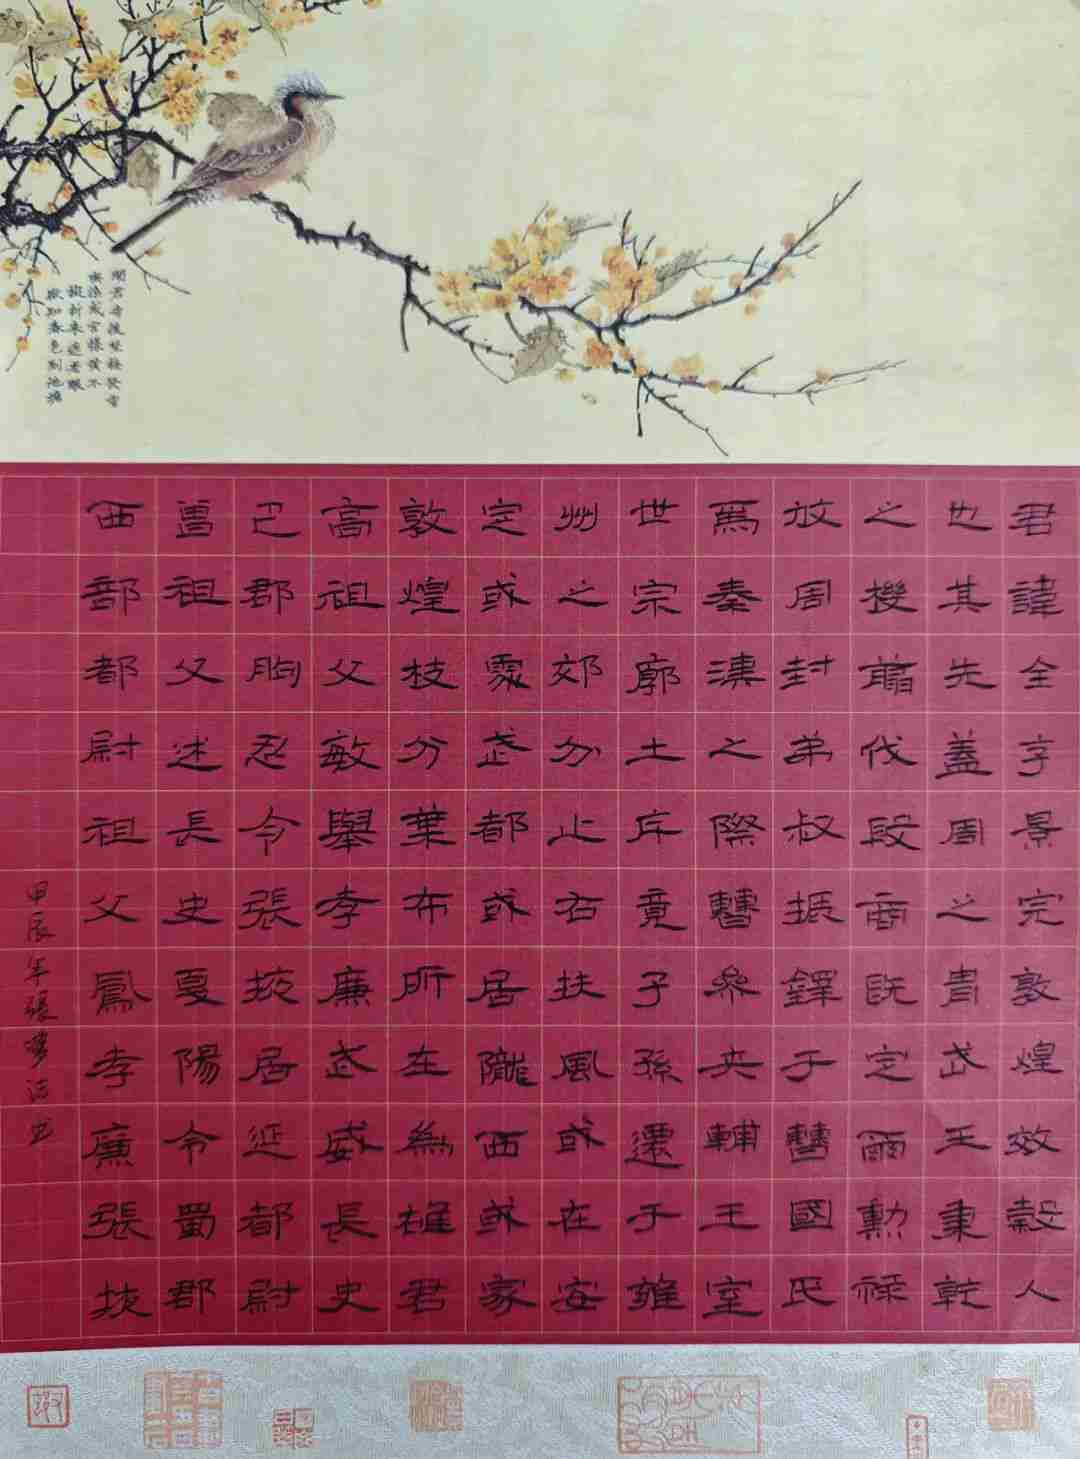 聞君寺後野梅發香
蜜染成宮樣黃不
擬折來遮老眼
欲知春色到池塘
君諱全字景完敦煌效穀人
也其先蓋周之胄武王秉乾
之機翦伐殷商既定爾勳祿
攸周封弟叔振鐸于曹國氏
焉秦漢之際曹參夾輔王室
世宗廓土斥竟子孫遷于雍
州之郊分止右扶風或在安
定或處武都或居隴西或家
敦煌枝分葉布所在為雄君
高祖父敏舉孝廉武威長史
巴郡朐忍令張掖居延都尉
曾祖父述長史夏陽令蜀郡
西部都尉祖父鳳孝廉張掖
甲辰年張夢洁书